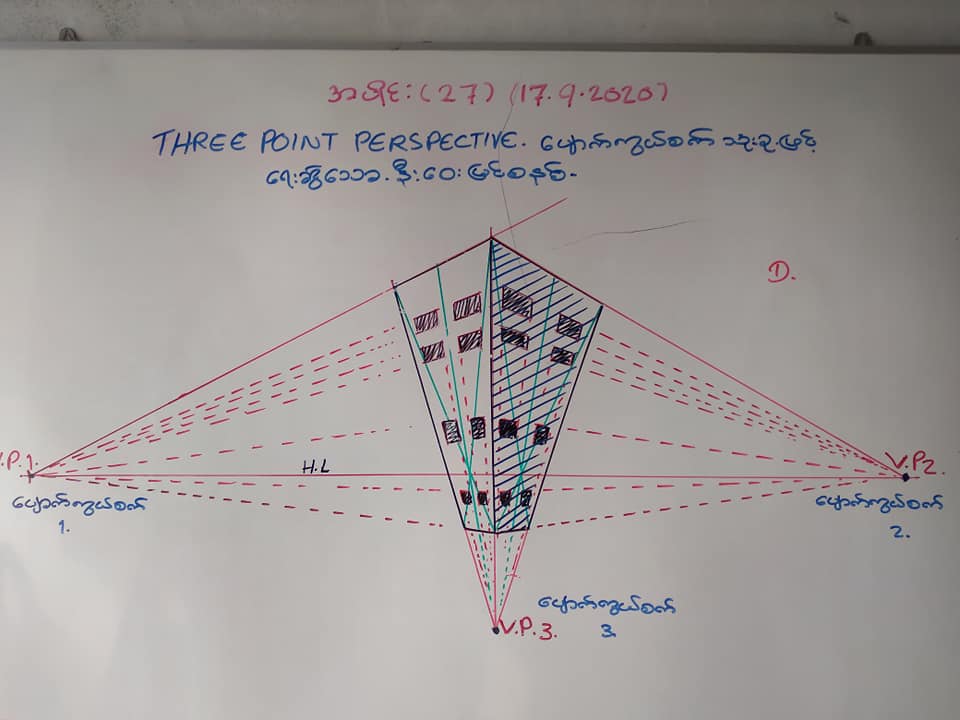 အပိုင်း (27) (17.9.2020)
THREE POINT PERSPECTIVE. ပျောက်ကွယ်စက် သုံးခုဖြင့်
ရေးဆွဲသော နီးဝေးမြင်စနစ်.
D.
V.P.1.
H.L
V.P2.
ပျောက်ကွယ်စက်
1.
ပျောက်ကွယ်စက်
2.
V.P.3.
ပျောက်ကွယ်စက်
3.